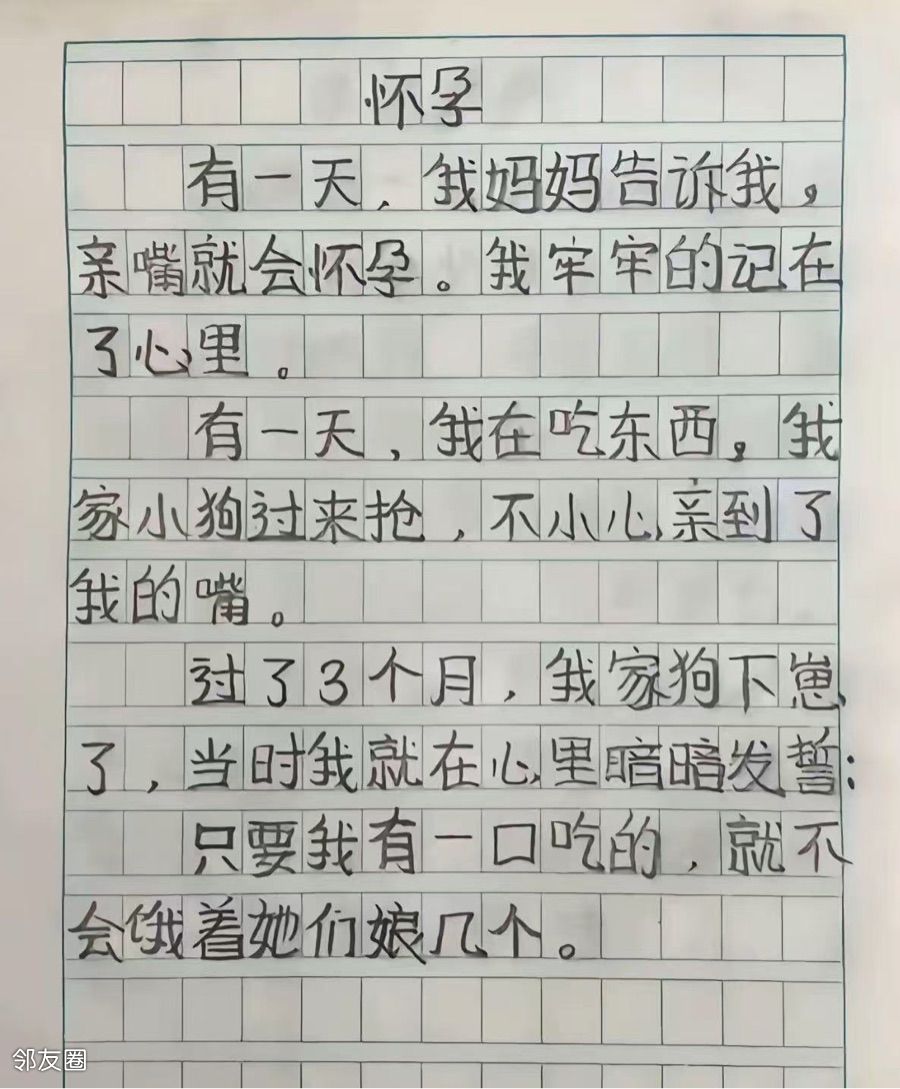 怀孕
有一天，我妈妈告诉我，
亲嘴就会怀孕。我牢牢的记在
了心里。
有一天，我在吃东西，我
家小狗过来抢，不小心亲到了
我的嘴。
过了3个月，我家狗下崽
了，当时我就在心里暗暗发誓：
只要我有一口吃的，就不
会饿着她们娘几个。
邻友圈